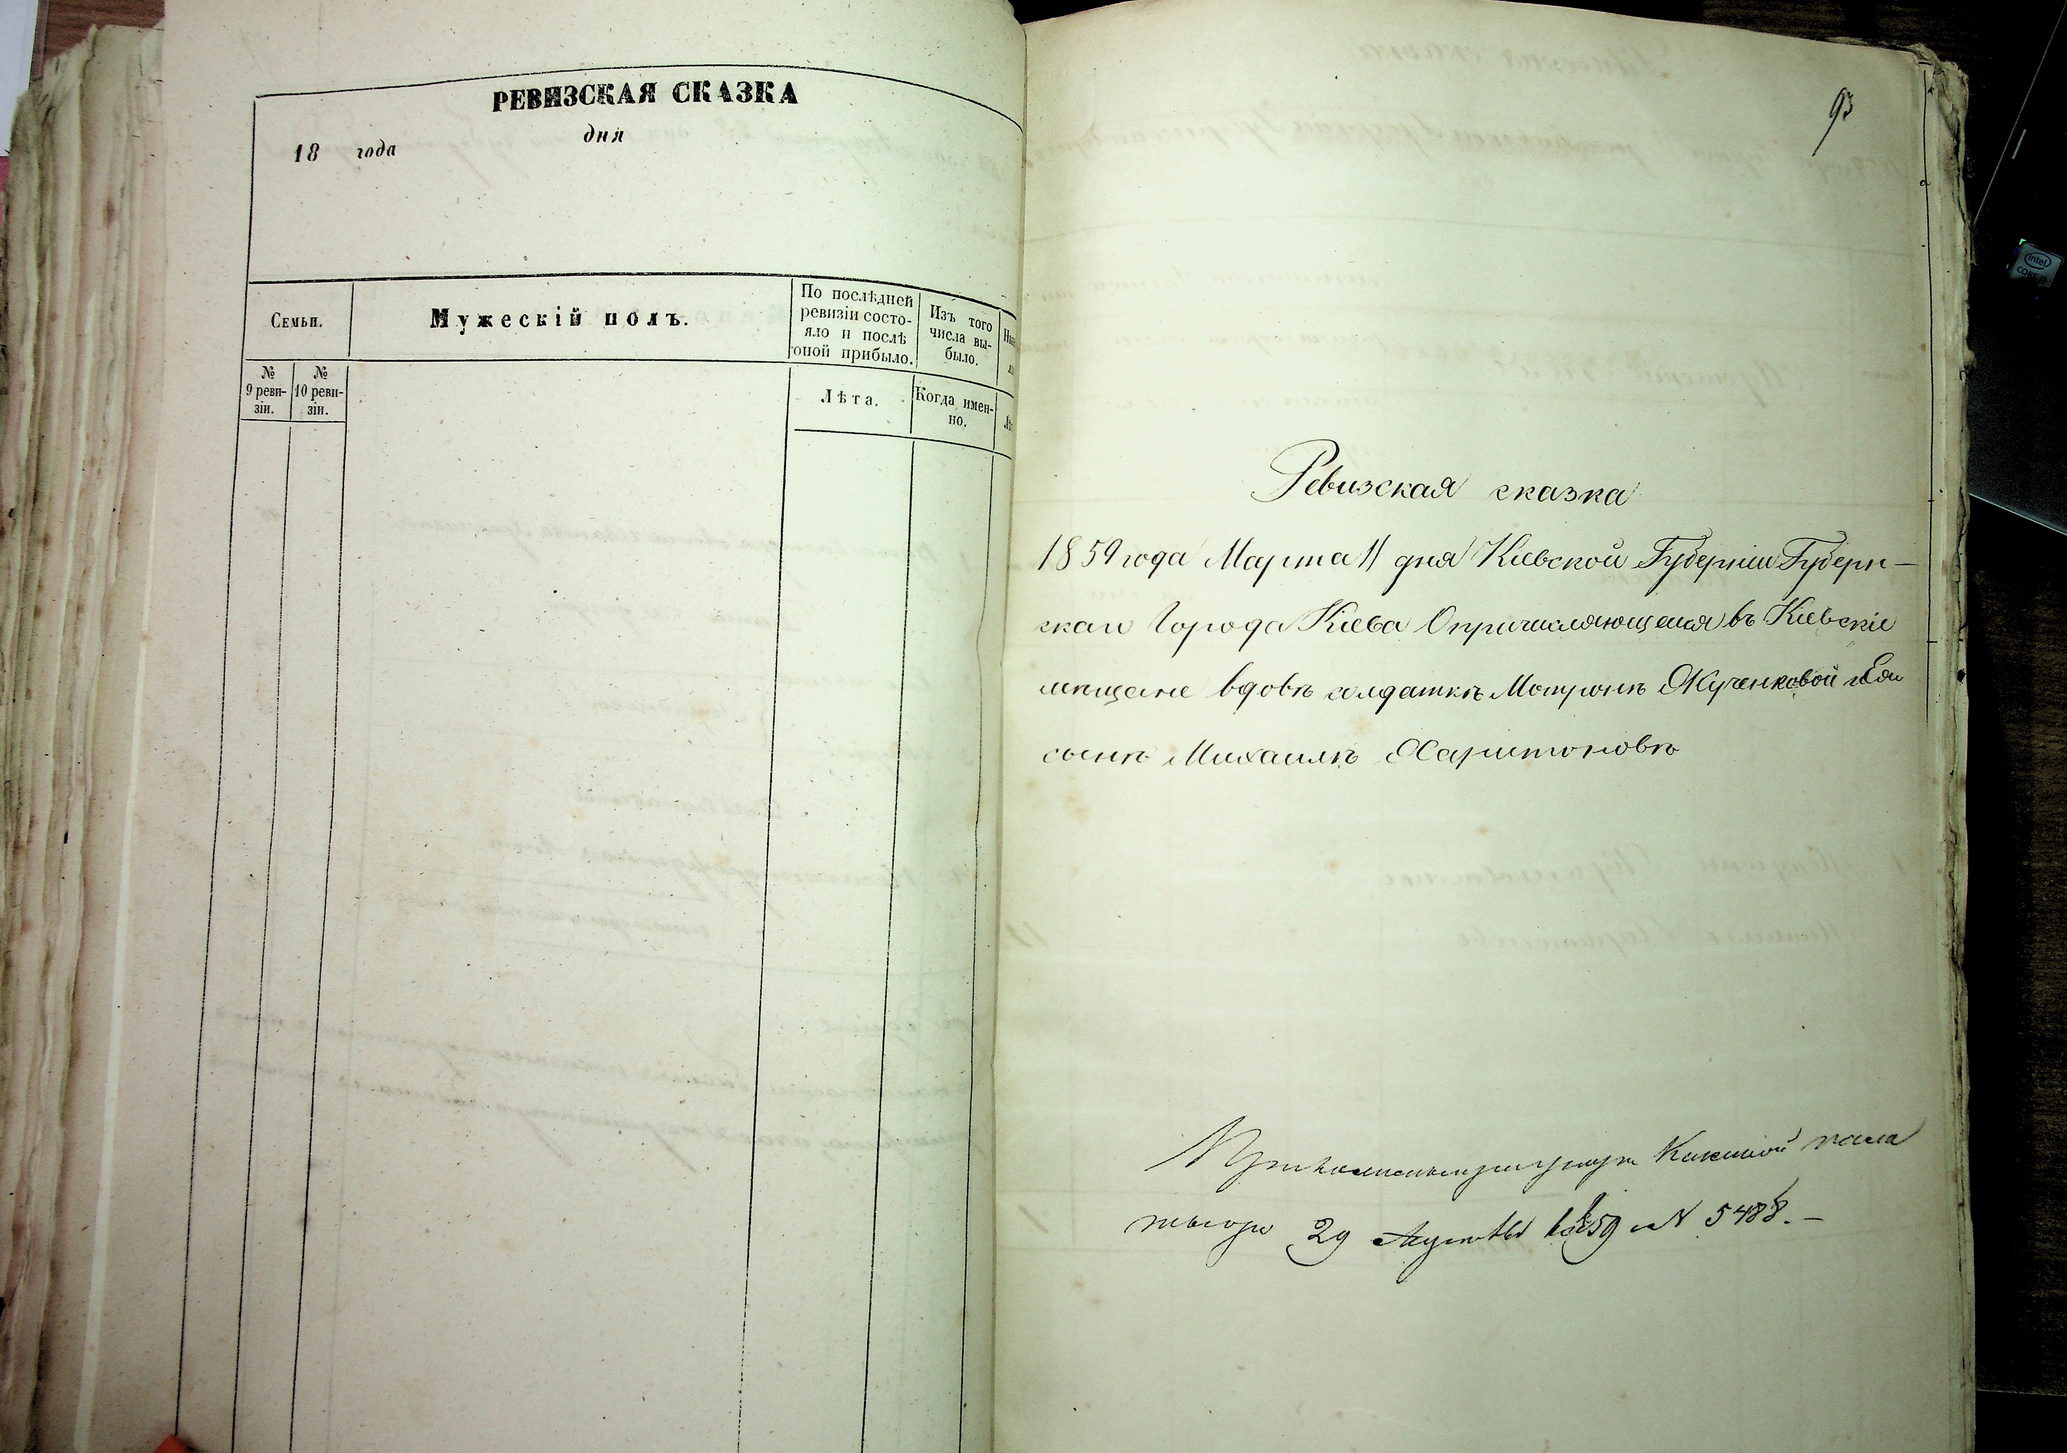 РЕВИЗСКАЯ СКАЗКА
18 года дня
Семьи.
Мужескій полъ.
По послѣдней
ревизіи состо-
яло и послѣ
оной прибыло.
Изъ того
числа вы-
было.
№
9 реви-
зіи.
№
10 реви-
зіи.
Лѣта.
Когда имен-
но.
93
Ревизская сказка
1859 года Марта 11 дня Кіевской Губерніи Губерн-
скаго Города Кіева О причисляющейся въ Кіевскіе
мещане вдовѣ солдаткѣ Мотронѣ Жученковой и Ея
сынѣ Михаилѣ Харитоновѣ
Казенной пала
29 1859 N 5488.-
intel
CORE